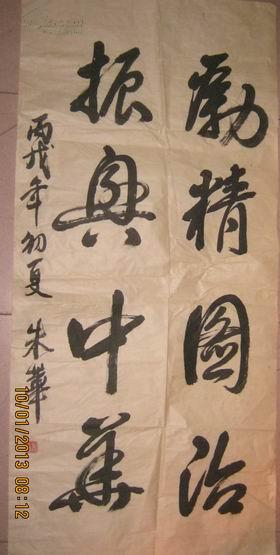 励精图治
振兴中华
丙戌年初夏
朱華
10/01/2013 08:12